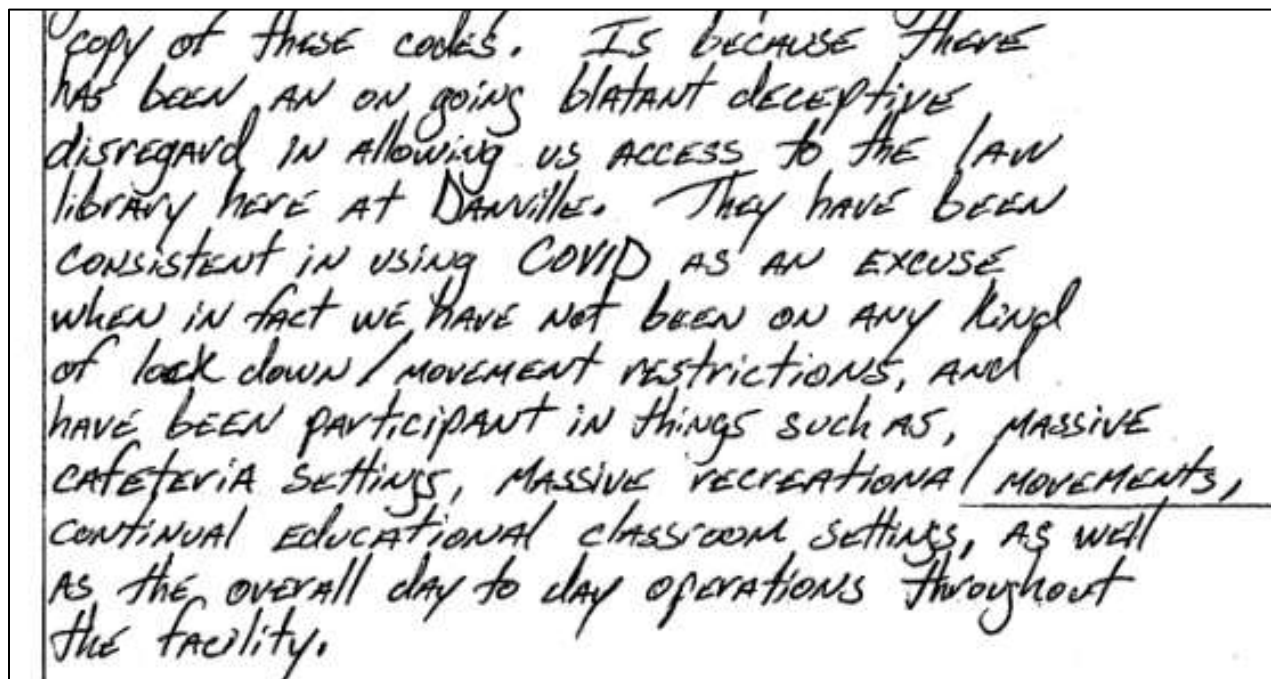 copy of these codes. Is because there
has been an on going blatant deceptive
disregard in allowing us access to the law
library here at Danville. They have been
consistent in using COVID as an excuse
when in fact we have not been on any kind
of lock down/movement restrictions, and
have been participant in things such as, massive
cafeteria settings, massive recreational movements,
continual educational classroom settings, as well
as the overall day to day operations throughout
the facility.